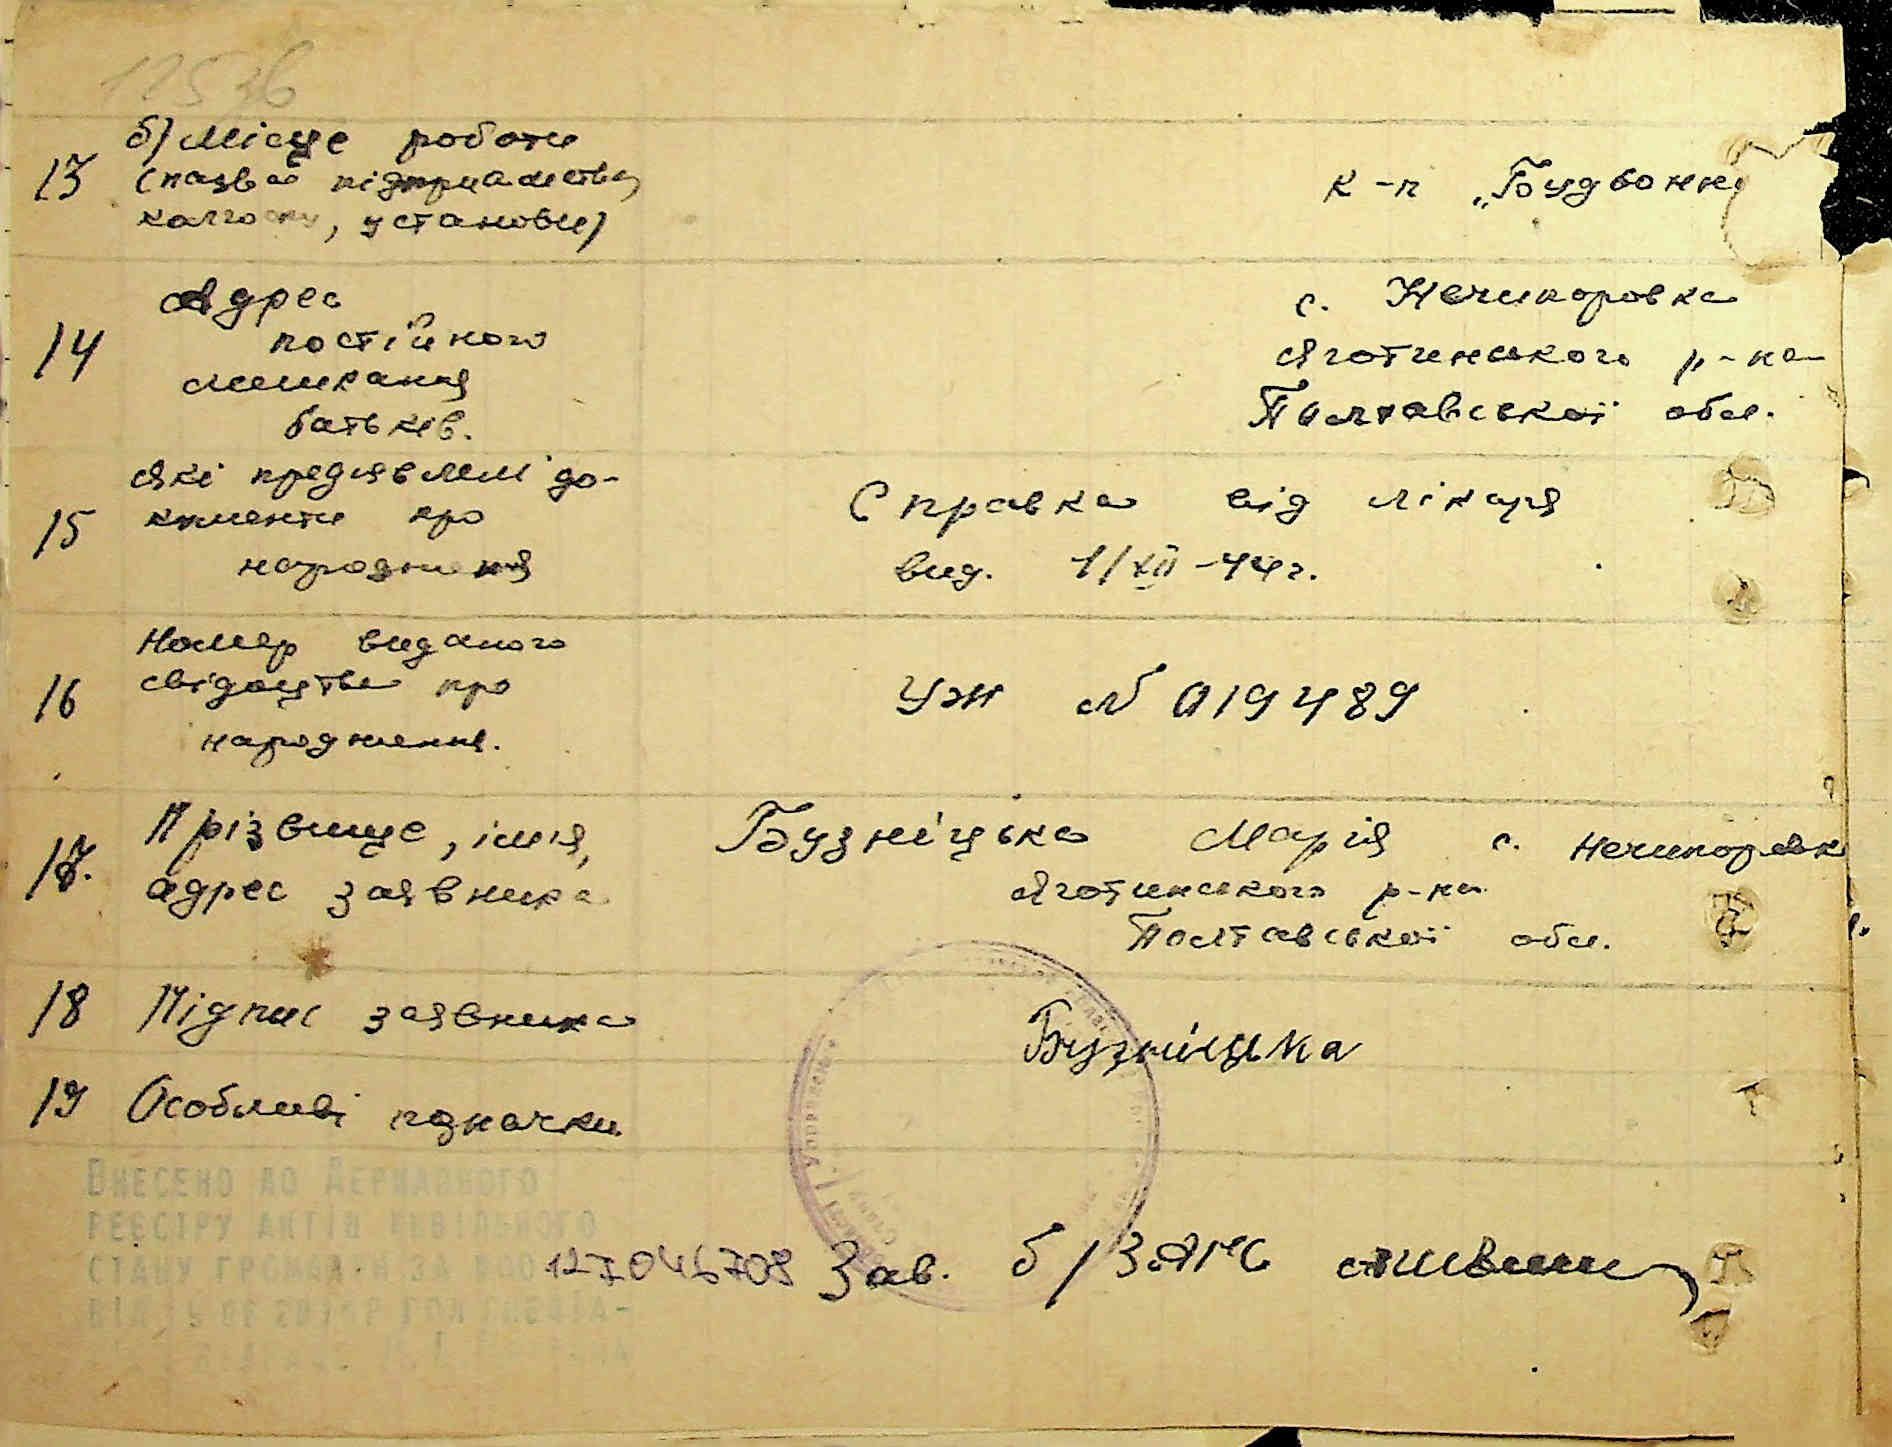 12536
б) Місце роботи
13 (назва підприємства,
колгоспу, установи)
к-п „Будвонн
14 Адрес
постійного
мешкання
батьків.
с. Нечипоровка
Яготинського р-на
Полтавської обл.
15 Які предявлені до-
кументи про
народження
Справка від лікаря
вид. 1/XII-44г.
16 Номер виданого
свідоцтва про
народження.
УЖ № 019489
17. Прізвище, імя,
адрес заявника
Бузніцька Марія с. Нечипоровк
Яготинського р-на
Полтавської обл.
18 Підпис заявника
Бузніцька
19 Особливі позначки
Внесено до Державного
реєстру актів цивільного
стану громадян за
127046709 Зав. б/ЗАГС